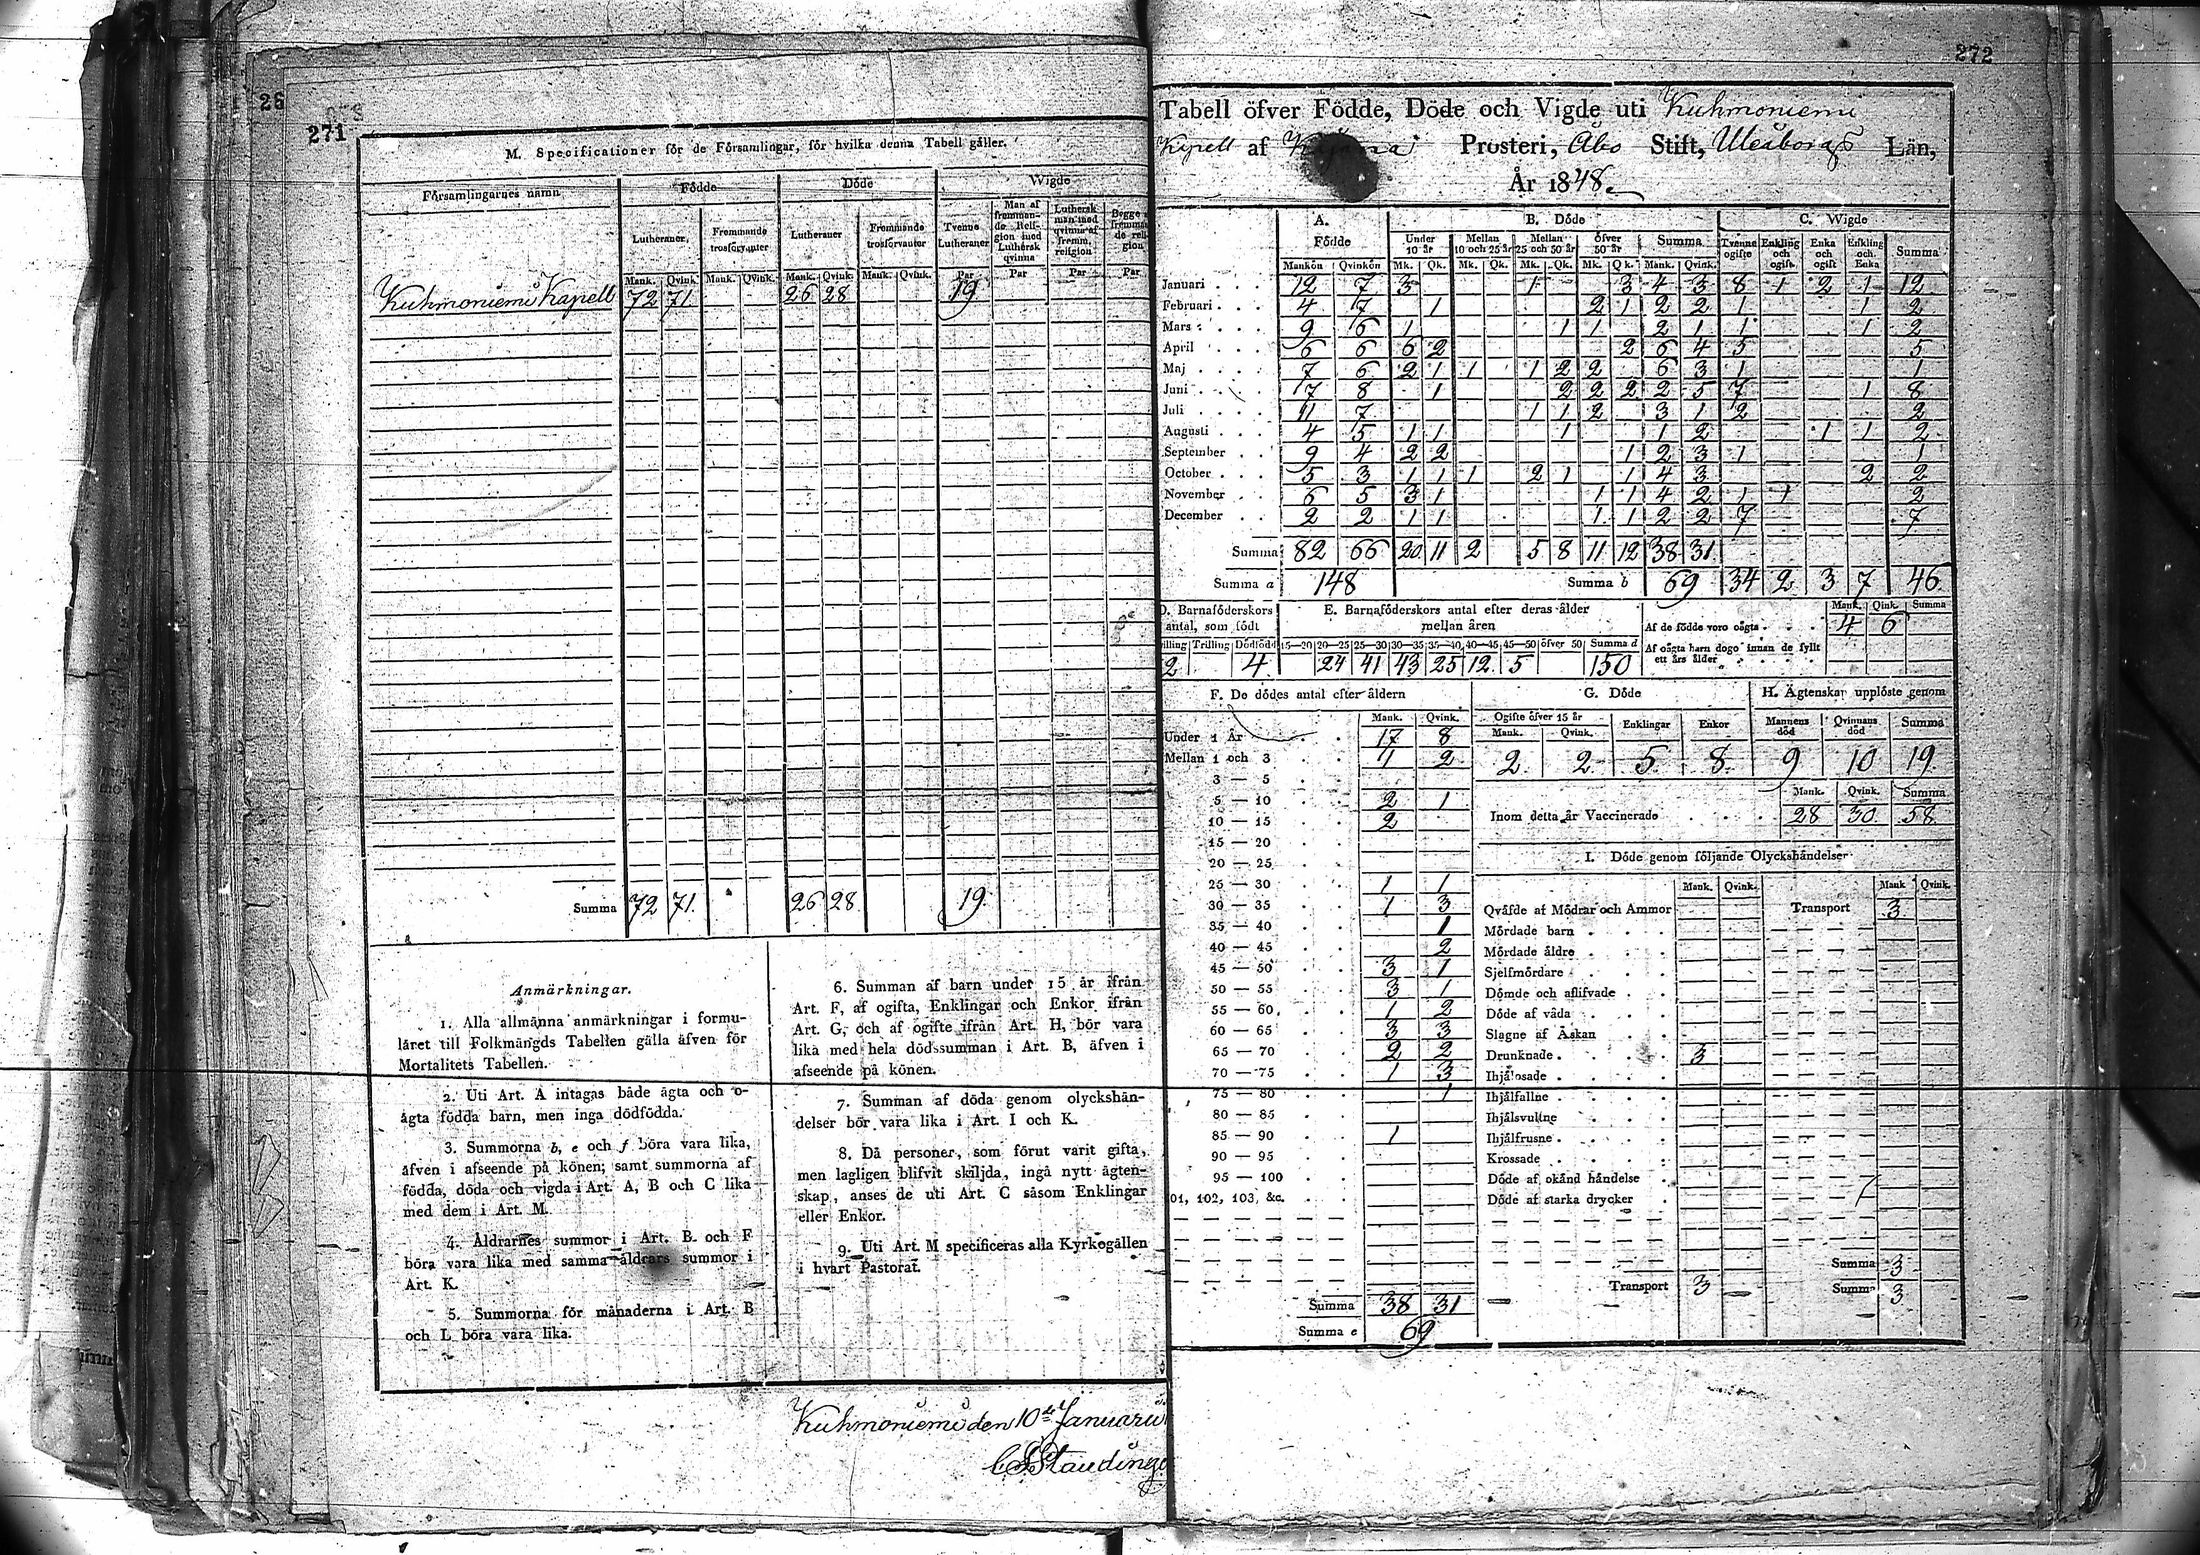 26
271
M. Specificationer för de Församlingar, för hvilka denna Tabell gäller.
Församlingarnes namn Födde Döde Wigde
Lutheraner, Fremmande trosförvanter Lutheraner Fremmande trosförvanter Tvenne Lutheraner Man af fremmande Religion med Luthersk qvinna Luthersk man med qvinna af fremm. religion Begge fremmande religion
Mank. Qvink. Mank. Qvink. Mank. Qvink. Mank. Qvink. Par Par Par Par
Kuhmoniemi Kapell 72 71 26 28 19
Summa 72 71. 26 28 19.
Anmärkningar.
1. Alla allmänna anmärkningar i formu-
läret till Folkmängds Tabellen gälla äfven för
Mortalitets Tabellen.
2. Uti Art. A intagas både ägta och o-
ägta födda barn, men inga dödfödda.
3. Summorna b, e och f böra vara lika,
äfven i afseende på könen; samt summorna af
födda, döda och vigda i Art. A, B och C lika
med dem i Art. M.
4. Åldrarnes summor i Art. B och F
böra vara lika med samma åldrars summor i
Art. K.
5. Summorna för månaderna i Art. B
och L böra vara lika.
6. Summan af barn under 15 år ifrån
Art. F, af ogifta, Enklingar och Enkor ifrån
Art. G, och af ogifte ifrån Art. H, bör vara
lika med hela dödssumman i Art. B, äfven i
afseende på könen.
7. Summan af döda genom olyckshän-
delser bör vara lika i Art. I och K.
8. Då personer, som förut varit gifta,
men lagligen blifvit skiljda, ingå nytt ägten-
skap, anses de uti Art. C såsom Enklingar
eller Enkor.
9. Uti Art. M specificeras alla Kyrkogällen
i hvart Pastorat.
Kuhmoniemi den 10de Januarii
C S Staudinge
272
Tabell öfver Födde, Döde och Vigde uti Kuhmoniemi
Kapell af Kajana Prosteri, Åbo Stift, Uleåborgs Län,
År 1848.
A. Födde B. Döde C. Wigde
Under 10 år Mellan 10 och 25 år Mellan 25 och 50 år öfver 50 år Summa Tvenne ogifte Enkling och ogift Enka och ogift Enkling och Enka Summa
Mankön Qvinkön Mk. Qk. Mk. Qk. Mk. Qk. Mk. Qk. Mank. Qvink.
Januari 12 7 3 1 3 4 3 8 1 2 1 12
Februari 4 7 1 2 1 2 2 1 1 2
Mars 9 6 1 1 1 2 1 1 1 2
April 6 6 6 2 2 6 4 5 5
Maj 7 6 2 1 1 1 2 2 6 3 1 1
Juni 7 8 1 2 2 2 2 5 7 1 8
Juli 11 7 1 1 2 3 1 2 2
Augusti 4 5 1 1 1 1 2 1 1 2
September 9 4 2 2 1 2 3 1 1
October 5 3 1 1 1 2 1 1 4 3 2 2
November 6 5 3 1 1 1 4 2 1 1 2
December 2 2 1 1 1 1 2 2 7 7
Summa 82 66 20 11 2 5 8 11 12 38 31
Summa a 148 Summa b 69 34 2 3 7 46
D. Barnaföderskors antal, som födt
Trilling Dödfödd
2 4
E. Barnaföderskors antal efter deras ålder mellan åren
15—20 20—25 25—30 30—35 35—40 40—45 45—50 öfver 50 Summa d
24 41 43 25 12 5 150
Mank. Qink. Summa
Af de födde voro oägta 4 6
Af oägta barn dogo innan de fyllt
ett års ålder
F. De dödes antal efter åldern
Mank. Qvink.
Under 1 År 17 8
Mellan 1 och 3 1 2
3 — 5
5 — 10 2 1
10 — 15 2
15 — 20
20 — 25
25 — 30 1 1
30 — 35 1 3
35 — 40 1
40 — 45 2
45 — 50 3 1
50 — 55 3 1
55 — 60 1 2
60 — 65 3 3
65 — 70 2 2
70 — 75 1 3
75 — 80 1
80 — 85
85 — 90 1
90 — 95
95 — 100
01, 102, 103, &c.
Summa 38 31
Summa e 69
G. Döde
Ogifte öfver 15 år Enklingar Enkor
Mank. Qvink.
2 2 5 8
H. Ägtenskap upplöste genom
Mannens död Qvinnans död Summa
9 10 19
Mank. Qvink. Summa
Inom detta år Vaccinerade 28 30 58
I. Döde genom följande Olyckshändelser
Mank. Qvink. Mank Qvink.
Qväfde af Mödrar och Ammor Transport 3
Mördade barn
Mördade äldre
Sjelfmördare
Dömde och aflifvade
Döde af våda
Slagne af Åskan
Drunknade 3
Ihjälosade
Ihjälfallne
Ihjälsvultne
Ihjälfrusne
Krossade
Döde af okänd händelse
Döde af starka drycker
Summa 3
Transport 3 Summa 3